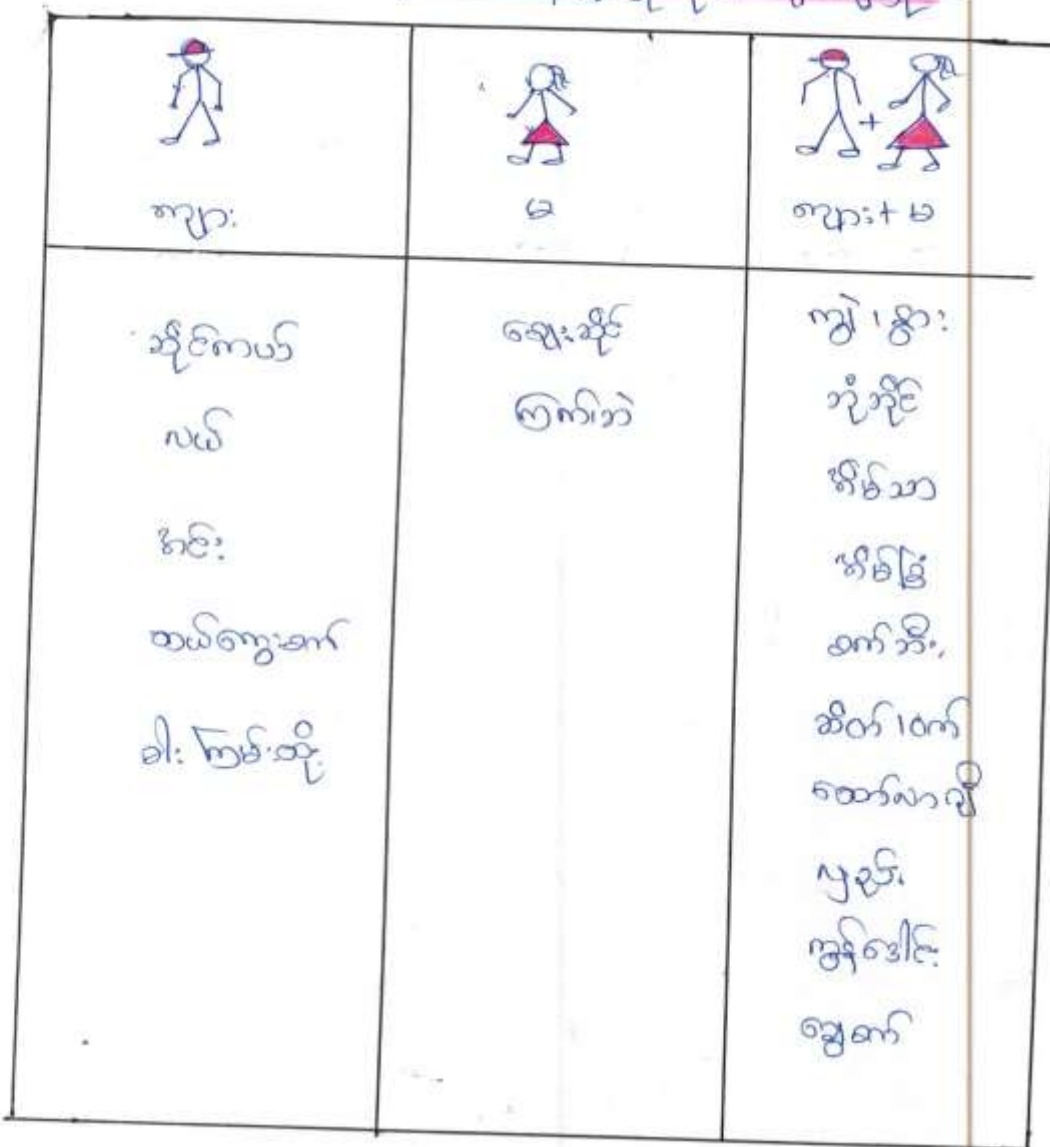 ကျား
မ
ကျား + မ
ဆိုင်ကယ်
လယ်
အင်း
ထယ်ကွေးစက်
ဓါးကြမ်းထိုး
ဈေးဆိုင်
ကြက်၊ဘဲ
ကျွဲ၊ နွား
ဘုံဘိုင်
အိမ်သာ
အိမ်ခြံ
စက်ဘီး
ဆိတ်၊ဝက်
ထော်လာဂျီ
လှည်း
ကျွန်ဒေါင်း
ချွေစက်